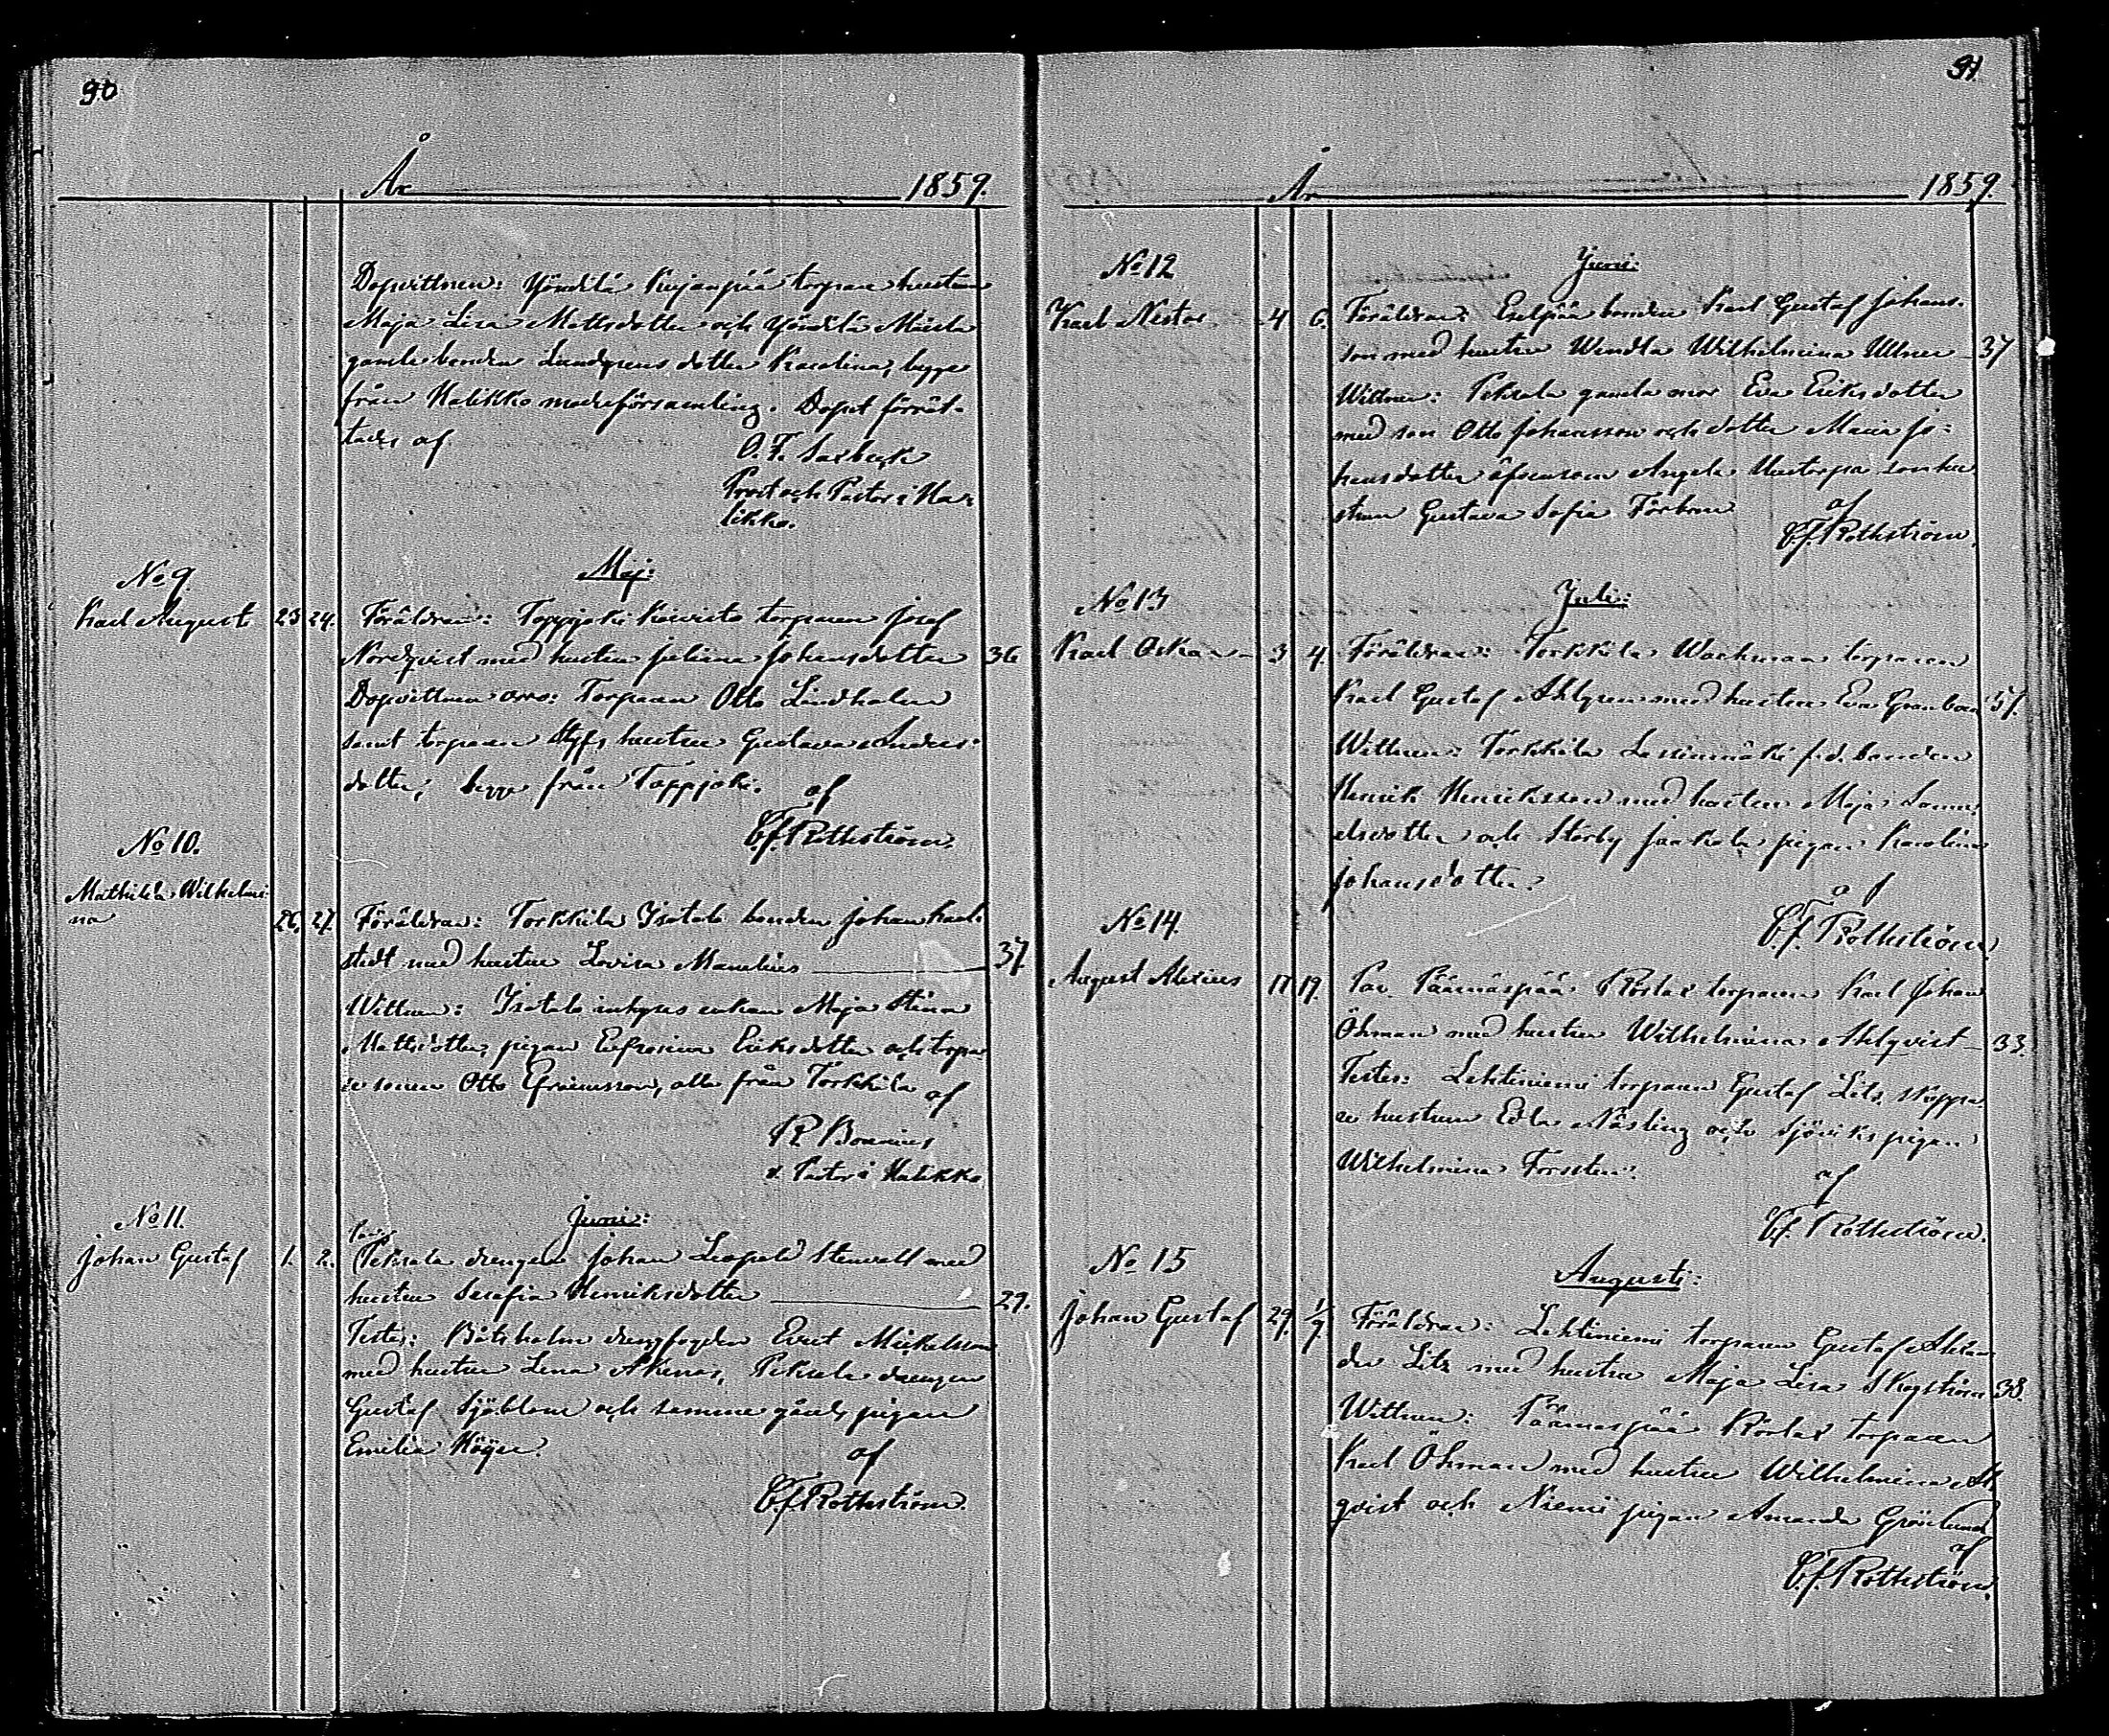 90
År 1859.
Dopvittnen: Yöntilä Kujanpää torpare hustrun
Maja Lisa Mattsdotter och Yöntilä
gamle bonden Lundgrens dotter Karolina, begge
från Halikko moderförsamling. Dopet förrät-
tades af
Prost och Pastor i Ha-
likko.
Maj:
No 9.
Karl August 23 24. Föräldrar: Toppjoki Koivisto torparen Josef
Nordqvist med hustru Juliana Johansdotter 36
Dopvittnen voro: Torparen Otto Lindholm
samt torparen hustru Gustava Anders-
dotter, begge från Toppjoki. af
C.J. Rothström.
No 10.
Mathilda Wilhelmi-
na 26. 27. Föräldrar: Torkkila Isotalo bonden Johan Karl-
stedt med hustru Lovisa Manelius 37
Wittnen: Isotalo inhyses enkan Maja Stina
Mattsdotter, pigan Eufrosina Eriksdotter och torpa-
re sonen Otto Efraimsson, alla från Torkkila af
v. Pastor i Halikko
Juni:
No 11.
Johan Gustaf 1. 2. Peksala drengen Johan Leopold Stenvall med
hustru Serafia Henriksdotter 29.
Testes: Båtsholm drengfogden Evert Mickelsson
med hustru Lena Akenas, Peksala drengen
Gustaf Sjöblom och samma gårds pigan
Emilia Höijer. af
C.J. Rothström.
91
År 1859.
Juni:
No 12
Karl Nestor 4 6. Föräldrar: bonden Karl Gustaf Johans-
son med hustru Wendla Wilhelmina Ulner 37
Wittnen: Peksala gamla mor Eva Eriksdotter
med son Otto Johansson och dotter Maria Jo-
hansdotter äfvensom Angela Uustorpa son hu-
strun Gustava Sofia Förbom af
C.J. Rothström.
Juli:
No 13
Karl Oskar 3 4. Föräldrar: Torkkila Wachman torparen
Karl Gustaf Ahlgren med hustru Eva Granbom 37.
Wittnen: Torkkila Lassinmäki f.d. bonden
Henrik Henriksson med hustru Maja Samu-
elsdotter och Storby Jaakola pigan Karolina
Johansdotter. af
C.J. Rothström
No 14.
August Alexius 17 19. Par. Päärnäspää Rörlax torparen Karl Johan
Öhman med hustru Wilhelmina Ahlqvist 33.
Testes: Lehtiniemi torparen Gustaf Litz, skeppa-
re hustrun Edla Näsling och Sjöviks pigan
Wilhelmina Forsten. af
C.J. Rothström.
Augusti:
No 15
Johan Gustaf 29. 1/9. Föräldrar: Lehtiniemi torparen Gustaf Alexan-
der Litz med hustru Maja Lisa Skogström 38.
Wittnen: Päärnäspää Rörlax torparen
Karl Öhman med hustru Wilhelmina Ahl-
qvist och Niemi pigan Amanda Grönlund
af
C.J. Rothström.